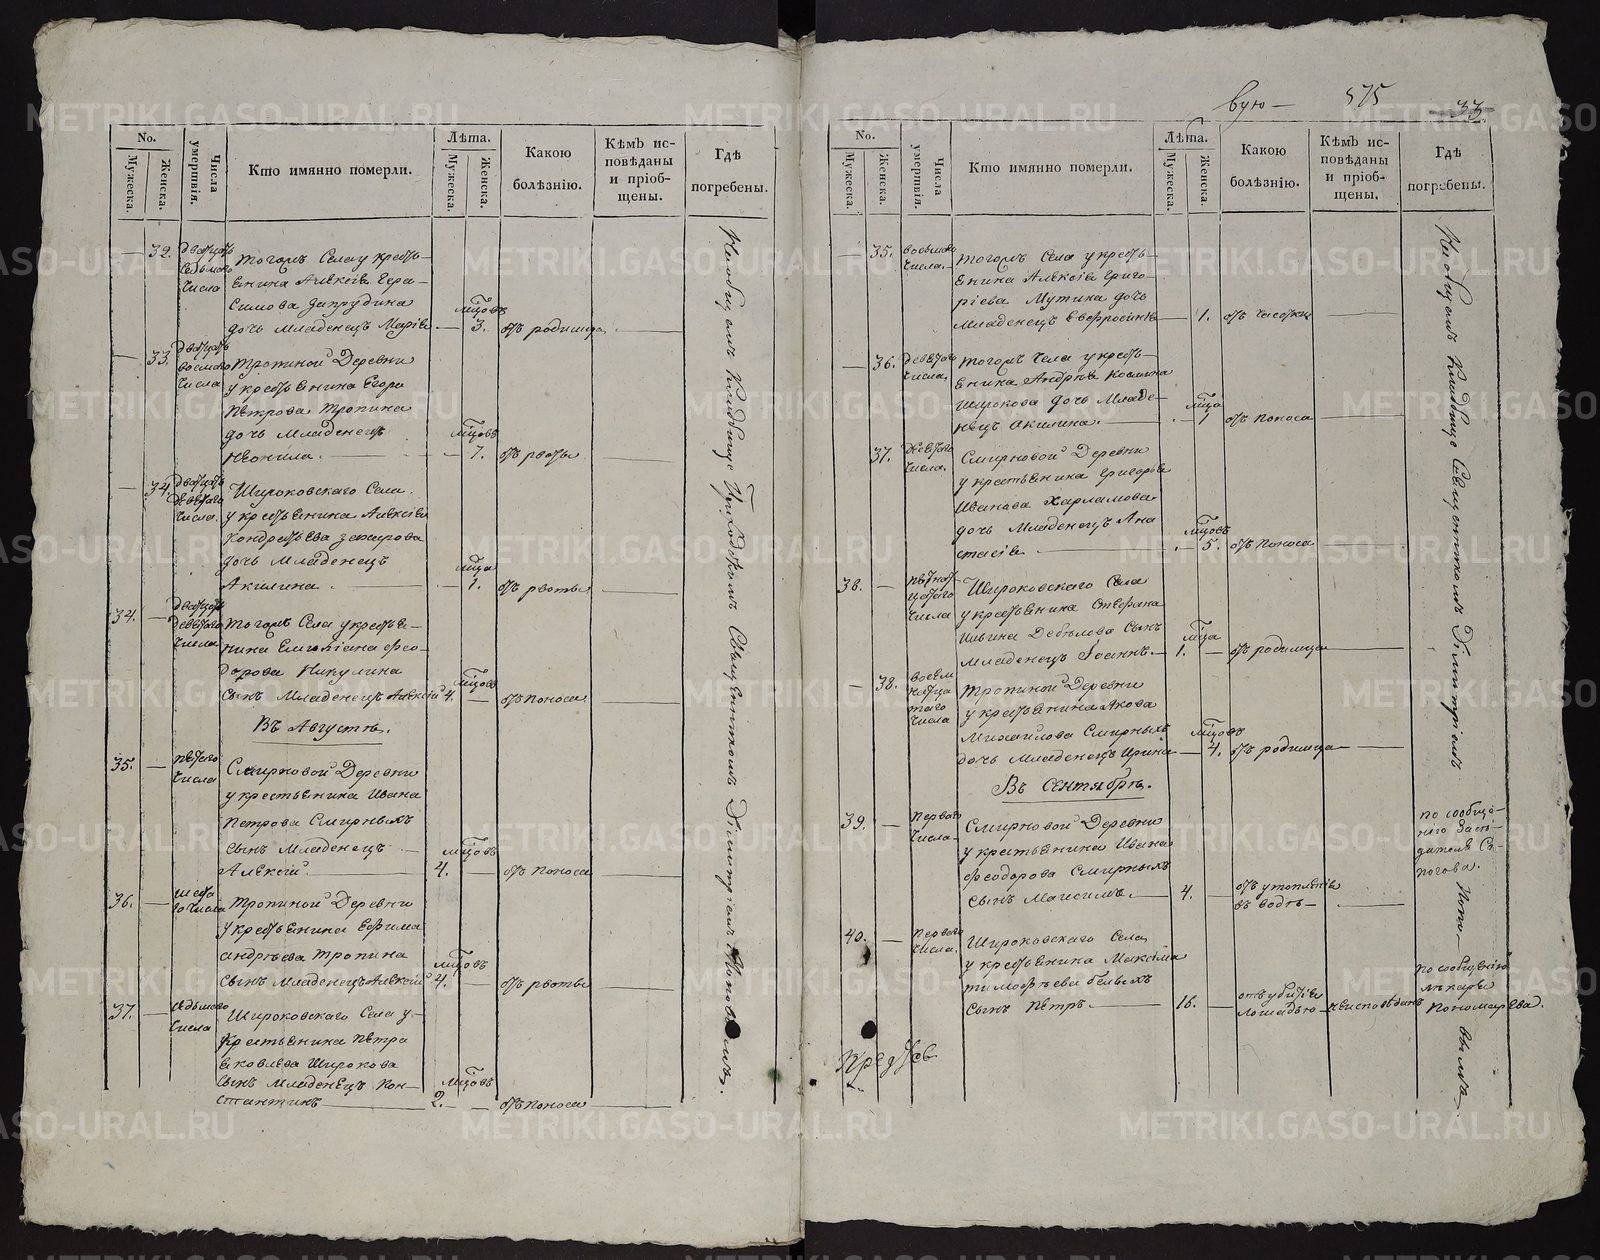 вую — 575 33.
No.
Мужеска.
Женска.
Числа умертвія.
Кто имянно померли.
Лѣта.
Мужеска.
Женска.
Какою болѣзнію.
Кѣмъ исповѣданы и пріобщены.
Гдѣ погребены.
— 32. двадцать
седьмаго
числа
тогожъ Села у кресть-
янина Алексія Гера-
симова Запрудина
дочь младенецъ Марія — мцовъ 3. отъ родимца. —
— 33. двадцать
восьмаго
числа
Тропиной Деревни
у крестьянина Егора
Петрова Тропина
дочь младенецъ
Неонила. — мцовъ 7. отъ рвоты —
— 34. двадцать
девятаго
числа.
Широковскаго Села.
у крестьянина Алексія
Кондратьева
дочь младенецъ
Акилина. — мца 1. отъ рвоты —
34. — двадцать
девятаго
числа
тогожъ Села у крестья-
нина Емиліана Фео-
дорова Никулина
сынъ младенецъ Алексій мцовъ 4. — отъ поноса —
Въ Августѣ.
35. — пятаго
числа
Смирновой Деревни
у крестьянина Ивана
Петрова Смирныхъ
сынъ младенецъ
Алексій. — мцовъ 4. — отъ поноса —
36. — шеста
го числа
Тропиной Деревни
у крестьянина Ефима
Андреева Тропина
сынъ младенецъ Алексій мцовъ 4. — отъ рвоты —
37. — седьмаго
числа
Широковскаго Села у
крестьянина Петра
Яковлева Широкова
сынъ младенецъ Кон-
стантинъ — мцовъ 2. — отъ поноса —
На общемъ кладбище Приходскимъ Священникомъ Димитріемъ Поповымъ.
No.
Мужеска.
Женска.
Числа умертвія.
Кто имянно померли.
Лѣта.
Мужеска.
Женска.
Какою болѣзнію.
Кѣмъ исповѣданы и пріобщены.
Гдѣ погребены.
— 35. восьмаго
числа.
тогожъ Села у кресть-
янина Алексія Григо-
ріева Мутина дочь
младенецъ Евфросинія — 1. отъ чесотки —
— 36. девятаго
числа.
тогожъ Села у кресть-
янина Андрея Козмина
Широкова дочь младе-
нецъ Акилина. — мца 1 отъ поноса —
37. девятаго
числа.
Смирновой Деревни
у крестьянина Григорья
Иванова Харламова
дочь младенецъ Ана
стасія — мцовъ 5. отъ поноса —
38. — пятнад
цатаго
числа
Широковскаго Села
у крестьянина Стефана
Ильина Дебелова сынъ
младенецъ Іоаннъ. — мца 1. — отъ родимца —
— 38. восем
надца
таго
числа
Тропиной Деревни
у крестьянина Якова
Михайлова Смирныхъ
дочь младенецъ Ирина — мцовъ 4. отъ родимца —
Въ Сентябрѣ.
39. — перваго
числа
Смирновой Деревни
у крестьянина Ивана
Феодорова Смирныхъ
сынъ Максимъ. — 4. — отъ утоплѣнія
въ водѣ —
по сообще-
40. — перваго
числа.
Широковскаго Села
у крестьянина Максима
Тимофѣева Белыхъ
сынъ Петръ. — 16. — отъ убитія
лошадью — неисповѣданъ
по сообщенію
лѣкаря
Пономарева.
На общемъ кладбище Священникомъ Димитріемъ Попо- вымъ